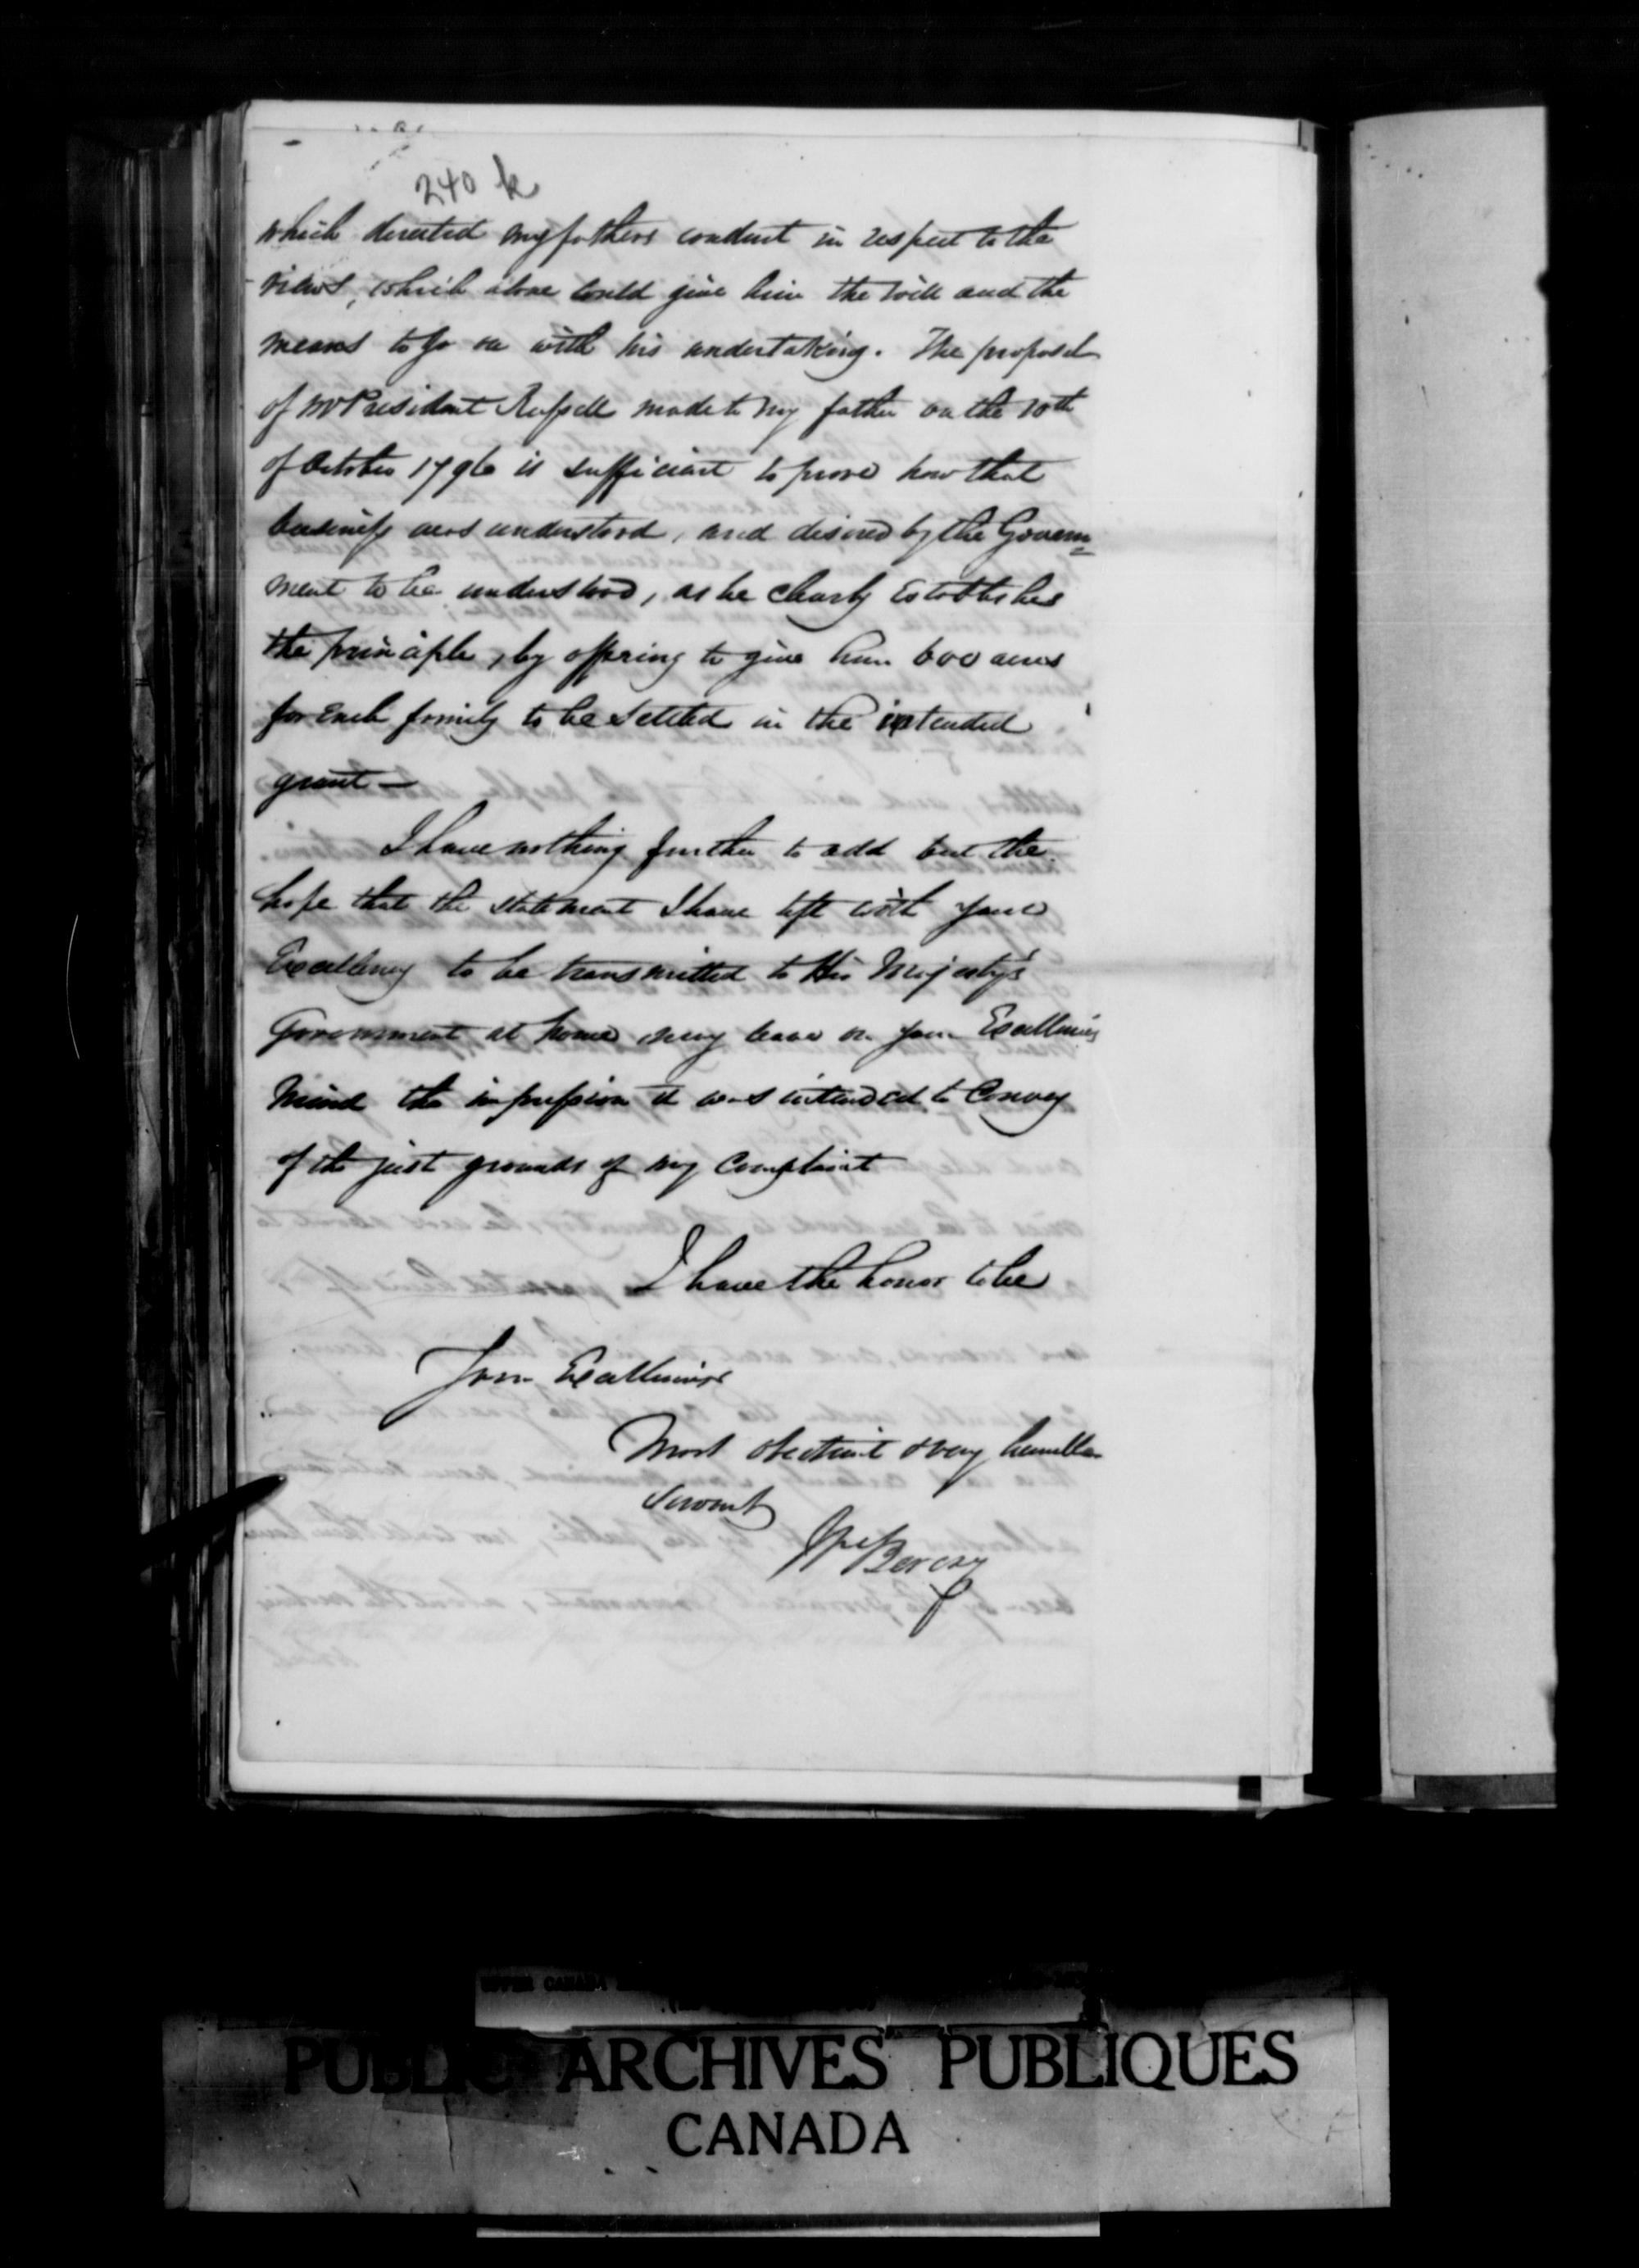 240 k
which directed my fathers conduct in respect to the
views, which alone could give him the will and the
means to go on with his undertaking. The proposal
of Mr President Russell made to my father on the 10th
of October 1796 is sufficient to prove how that
business was understood, and desired by the Govern=
ment to be understood, as he clearly Establishes
the principle, by offering to give him 600 acres
for Each family to be Settled in the intended
grant —
I have nothing further to add but the
hope that the statement I have left with Your
Excellency to be transmitted to His Majesty's
Government at home may leave on Your Excellencys
mind the impression it was intended to Convey
of the just grounds of my Complaint
I have the honor to be
Your Excellencys
Most obedient & very humble
Servant
Berczy
UPPER CANADA
PUBLIC ARCHIVES PUBLIQUES
CANADA